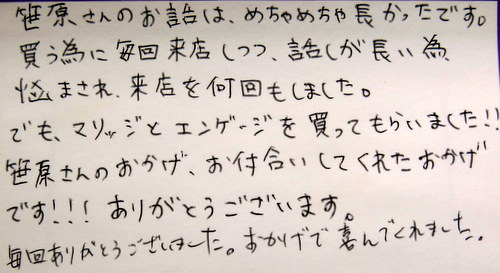 笹原さんのお話は、めちゃめちゃ長かったです。
買う為に毎回来店しつつ、話しが長い為
悩まされ、来店を何回もしました。
でも、マリッジとエンゲージを買ってもらいました!!
笹原さんのおかげ、お付合いしてくれたおかげ
です!!! ありがとうございます。
毎回ありがとうございました。おかげで喜んでくれました。